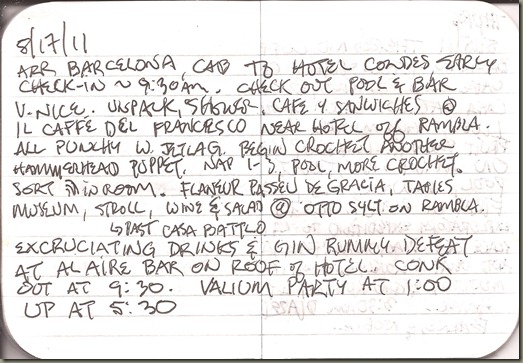 8/17/11
ARR BARCELONA, CAB TO HOTEL CONDES EARLY
CHECK-IN ~ 9:30am. CHECK OUT POOL & BAR
V. NICE. UNPACK, SHOWER, CAFE Y SANWICHES @
IL CAFFE DEL FRANCESCO NEAR HOTEL off RAMBLA.
ALL PUNCHY W. JETLAG. BEGIN CROCHET ANOTHER
HAMMERHEAD PUPPET. NAP 1-3, POOL, MORE CROCHET.
SORT IN ROOM. FLANEUR PASSEU DE GRACIA, TAPIES
MUSEUM, STROLL, WINE & SALAD @ OTTO SYLT ON RAMBLA.
↳ PAST CASA BATTLO
EXCRUCIATING DRINKS & GIN RUMMY DEFEAT
AT ALAIRE BAR ON ROOF of HOTEL. CONK
OUT AT 9:30. VALIUM PARTY AT 1:00
UP AT 5:30